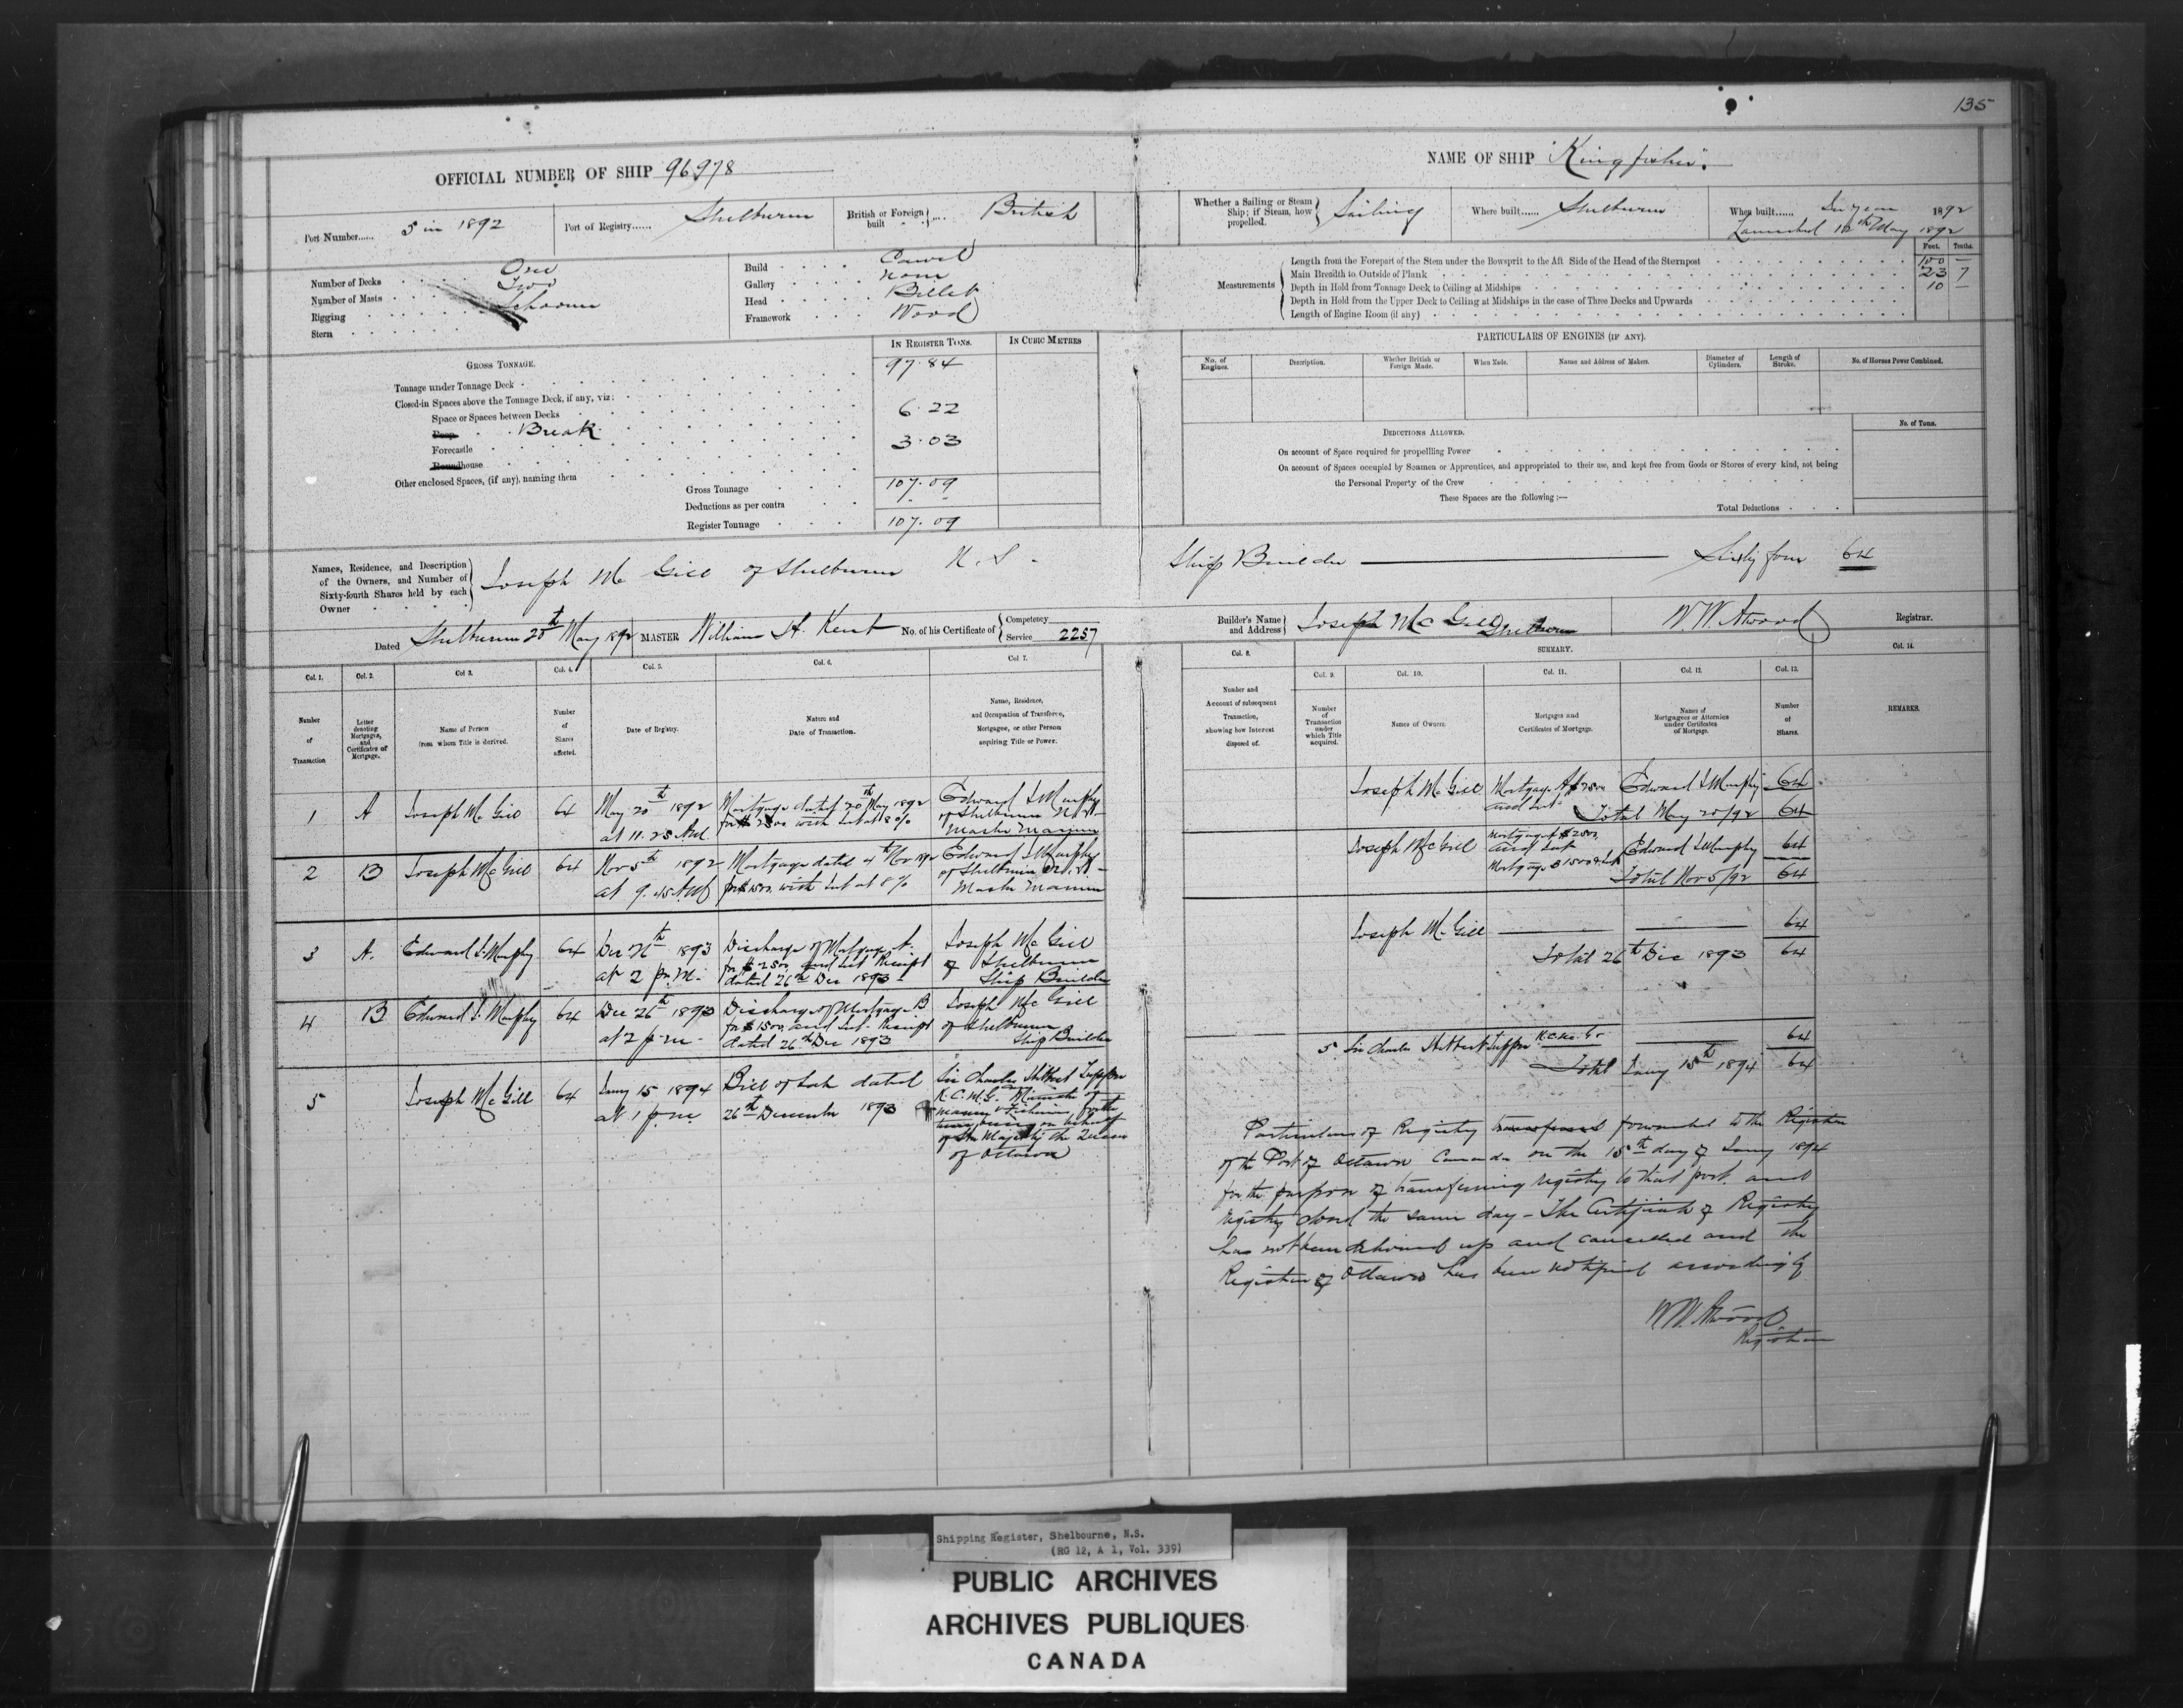 135
OFFICIAL NUMBER OF SHIP 96978
NAME OF SHIP "Kingfisher".
Port Number...... 5 in 1892
Port of Registry...... Shelburne
British or Foreign built British
Whether a Sailing or Steam Ship; if Steam, how propelled. Sailing
Where built...... Shelburne
When built...... In year 1892
Launched 12th May 1892
Number of Decks One
Number of Masts Two
Rigging Schooner
Stern
Build Carvel
Gallery None
Head Billet
Framework Wood
Measurements
Feet. Tenths.
Length from the Forepart of the Stem under the Bowsprit to the Aft Side of the Head of the Sternpost 100 –
Main Breadth to Outside of Plank 23 7
Depth in Hold from Tonnage Deck to Ceiling at Midships 10 –
Depth in Hold from the Upper Deck to Ceiling at Midships in the case of Three Decks and Upwards
Length of Engine Room (if any)
GROSS TONNAGE.
IN REGISTER TONS.
IN CUBIC METRES
Tonnage under Tonnage Deck 97.84
Closed-in Spaces above the Tonnage Deck, if any, viz:
Space or Spaces between Decks
Poop Break 6.22
Forecastle 3.03
Roundhouse
Other enclosed Spaces, (if any), naming them
Gross Tonnage 107.09
Deductions as per contra - -
Register Tonnage 107.09
PARTICULARS OF ENGINES (IF ANY).
No. of Engines.
Description.
Whether British or Foreign Made.
When Made.
Name and Address of Makers.
Diameter of Cylinders.
Length of Stroke.
No. of Horses Power Combined.
DEDUCTIONS ALLOWED.
No. of Tons.
On account of Space required for propelling Power
On account of Spaces occupied by Seamen or Apprentices, and appropriated to their use, and kept free from Goods or Stores of every kind, not being
the Personal Property of the Crew
These Spaces are the following:—
Total Deductions
Names, Residence, and Description
of the Owners, and Number of
Sixty-fourth Shares held by each
Owner
Joseph Mc Gill of Shelburne N.S. - Ship Builder Sixty four 64
Dated Shelburne 20th May 1892
MASTER William H. Kent
No. of his Certificate of Competency Service 2257
Builder's Name and Address Joseph McGill Shelburne
W.W. Atwood Registrar.
Col. 1. Col. 2. Col 3. Col. 4. Col. 5. Col. 6. Col 7.
Number of Transaction
Letter denoting Mortgages, and Certificates of Mortgage.
Name of Person from whom Title is derived.
Number of Shares affected.
Date of Registry.
Nature and Date of Transaction.
Name, Residence, and Occupation of Transferee, Mortgagee, or other Person acquiring Title or Power.
Col. 8.
Number and Account of subsequent Transaction, showing how Interest disposed of.
SUMMARY.
Col. 9. Col. 10. Col. 11. Col. 12. Col. 13. Col. 14.
Number of Transaction under which Title acquired.
Names of Owners.
Mortgages and Certificates of Mortgage.
Names of Mortgagees or Attornies under Certificates of Mortgage.
Number of Shares.
REMARKS.
1 A Joseph Mc Gill 64
May 20th 1892
at 11.25 A.M.
Mortgage dated 20th May 1892
for $2500 with Int at 8%
Edward S Murphy
of Shelburne N.S.
Master Mariner
2 B Joseph McGill 64
Nov 5th 1892
at 9.45 A.M.
Mortgage dated 4th Nov 1892
for $1500 with Int at 8%
Edward S Murphy
of Shelburne N.S. -
Master Mariner
3 A. Edward S. Murphy 64
Dec 26th 1893
at 2 p.m.
Discharge of Mortgage A.
for $2500 and Int Receipt
dated 26th Dec 1893
Joseph Mc Gill
of Shelburne
Ship Builder
4 B Edward S. Murphy 64
Dec 26th 1893
at 2 p.m.
Discharge of Mortgage B
for $1500 and Int. Receipt
dated 26th Dec 1893
Joseph McGill
of Shelburne
Ship Builder
5 Joseph McGill 64
Jany 15 1894
at 1 p.m.
Bill of Sale dated
26th December 1893
Sir Charles Hibbert Tupper
K.C.M.G. Minister of
Marine & Fisheries for the
time being on behalf
of Her Majesty the Queen
of Ottawa
Joseph Mc Gill
Mortgage A $2500
and Int
Edward S Murphy 64
Total May 20/92 64
Joseph McGill
Mortgage A $2500
and Int
Mortgage B 1500 & Int
Edward S Murphy 64
Total Nov 5/92 64
Joseph Mc Gill 64
Total 26th Dec 1893 64
5 Sir Charles Hibbert Tupper K.C.M.G. 64
Total Jany 15th 1894 64
Particulars of Registry transferred forwarded to the Registrar
of the Port of Ottawa Canada on the 15th day of Jany 1894
for the purpose of transferring registry to that port. and
registry closed the same day - The Certificate of Registry
has not been delivered up and cancelled and the
Registrar of Ottawa has been notified accordingly
W.W. Atwood
Registrar
Shipping Register, Shelbourne, N.S.
(RG 12, A 1, Vol. 339)
PUBLIC ARCHIVES
ARCHIVES PUBLIQUES
CANADA